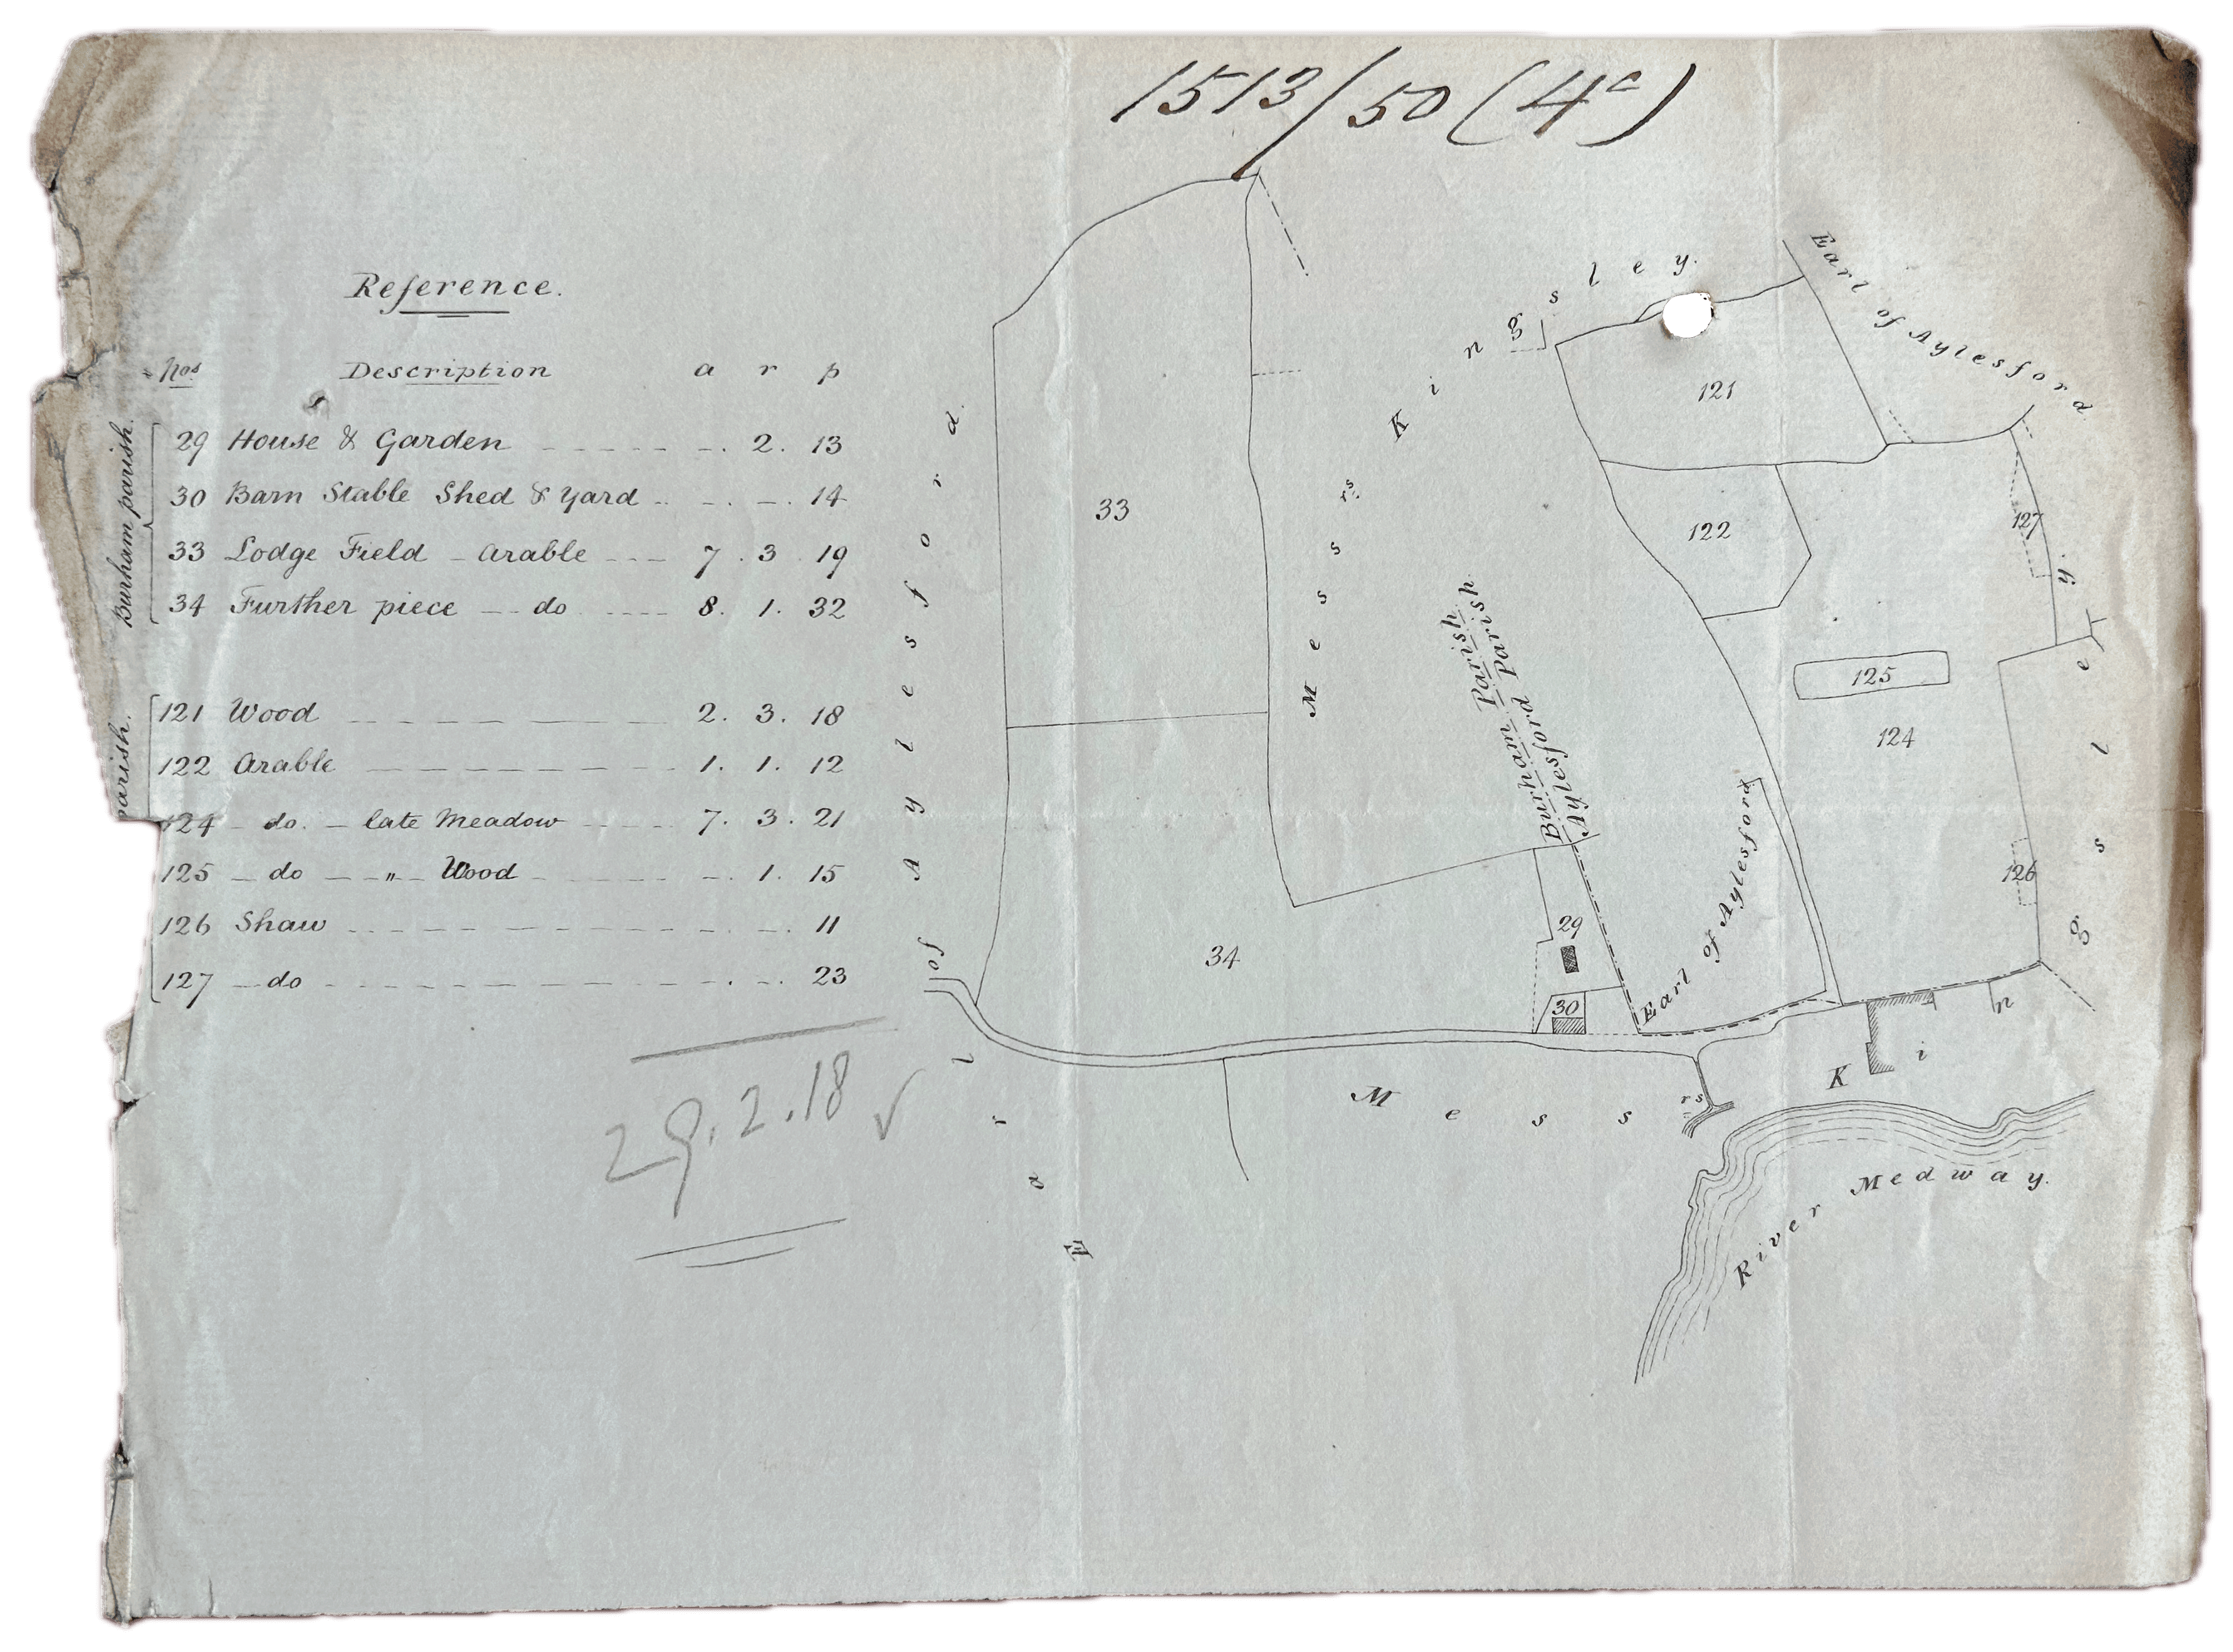 1513/50 (4c)
Reference.
Nos Description a r p
Burham parish.
29 House & Garden - - - - - - . 2. 13
30 Barn Stable Shed & Yard .. - . - . 14
33 Lodge Field - Arable --- 7 . 3 . 19
34 Further piece -- do ---- 8. 1. 32
parish.
121 Wood - - - - - - 2. 3. 18
122 Arable - - - - - - 1. 1. 12
124 - do. - late Meadow - - - - 7. 3. 21
125 - do - „ - Wood - - - - - . 1. 15
126 Shaw - - - - - - - . - . 11
127 - do - - - - - - - . - . 23
29.2.18 ✓
Earl of Aylesford.
Messrs Kingsley.
Earl of Aylesford
33
121
122
127
125
124
Burham Parish
Aylesford Parish
Earl of Aylesford
126
29
34
30
Messrs Kingsley.
River Medway.